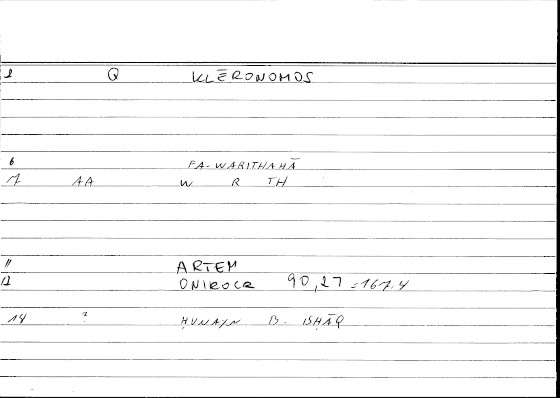 2 Q KLĒRONOMOS
6 FA-WARITHAHĀ
7 AA W R TH
11 ARTEM
12 ONIROCR 90,27 =167.4
14 ? ḤUNAYN B. ISḤĀQ